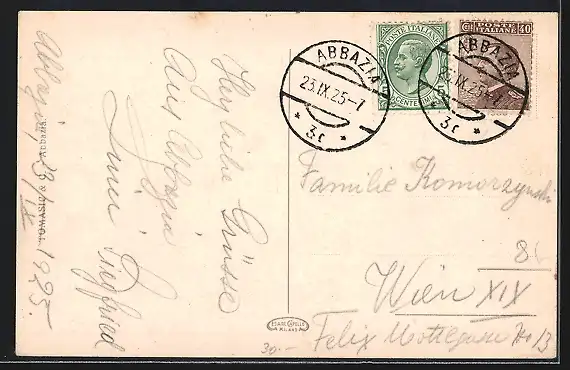 Abbazia, 23/IX 1925.
Herzliche Grüsse
aus Abbazia
Siegfried
TOMASIC &
Abbazia.
POSTE ITALIANE
CENTESIMI
POSTE ITALIANE 40
ABBAZIA
23.IX.25-7
* 3f *
ABBAZIA
23.IX.25-7
* 3f *
Familie Komorzynski
Wien XIX
Felix Mottlgasse No 13
CESARE CAPELLO
MILANO
30.-